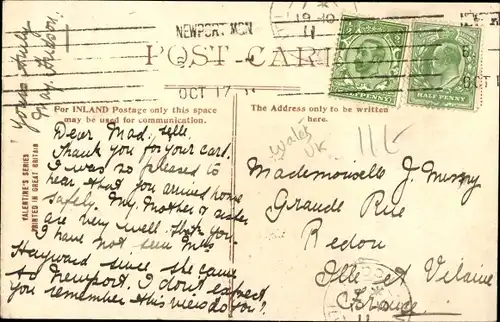 NEWPORT MON
19 10
11
OCT 17 11
POST-CARD
HALF PENNY
HALFPENNY
For INLAND Postage only this space
may be used for communication.
The Address only to be written
here.
VALENTINE'S SERIES
PRINTED IN GREAT BRITAIN
Dear Mad.selle.
Thank you for your card.
I was so pleased to
hear that you arrived home
safely. My Mother & sister
are very well thank you.
I have not seen Miss
Hayward since she came
to Newport. I don't expect
you remember this view do you?
Yours truly
Wales
UK
Mademoiselle J.
Grande Rue
Redon
Ille et Vilaine
France